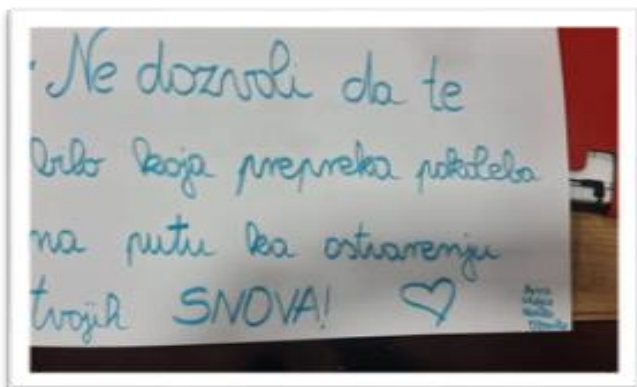 Ne dozvoli da te
bilo koja prepreka pokoleba
na putu ka ostvarenju
tvojih SNOVA!